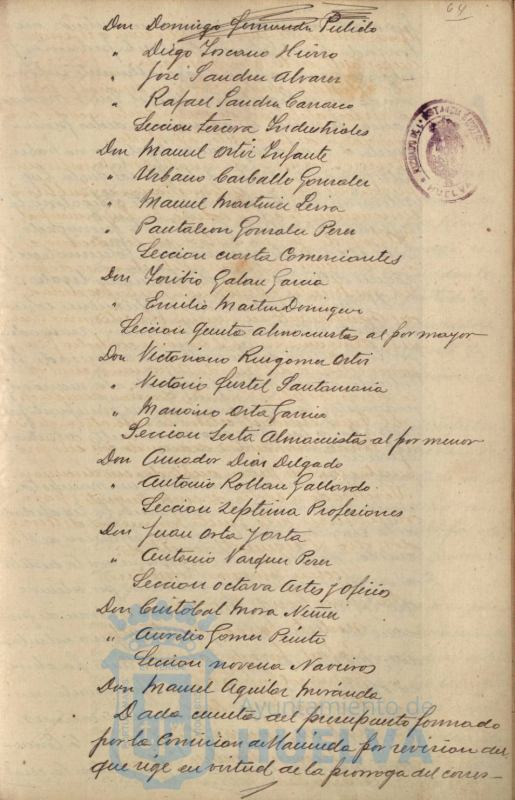 64
Don Domingo Fernandez Pulido
" Diego Toscano Hierro
" José Sandra Alvarez
" Rafael Sandra Carrasco
Seccion tercera Industriales
Don Manuel Ortiz Infante
" Urbano Carballo Gonzalez
" Manuel Martinez Leiva
" Pantaleon Gonzalez Perez
Seccion cuarta Comerciantes
Don Toribio Galan Garcia
" Emilio Martin Dominguez
Seccion quinta Almacenistas al por mayor
Don Victoriano Ortiz
" Santamaria
" Orta Garcia
Seccion sexta Almacenistas al por menor
Don Amador Dias Delgado
" Antonio Rollan Gallardo
Seccion septima Profesiones
Don Juan Orta Yorta
" Antonio Vazquez Perez
Seccion octava Artes y oficios
Don Cristobal Mora Nuñez
" Aurelio Gomez
Seccion novena Navieros
Don Manuel Aguilar Miranda
Dada cuenta del presupuesto formado
por la Comision de Hacienda por revision del
que rige en virtud de la prorroga del corres-
Ayuntamiento de
HUELVA
HUELVA